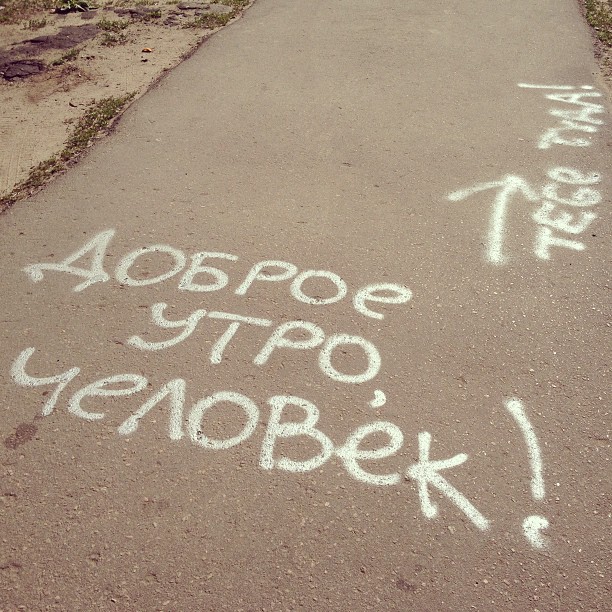 Доброе
утро,
человек!
тебе туда!